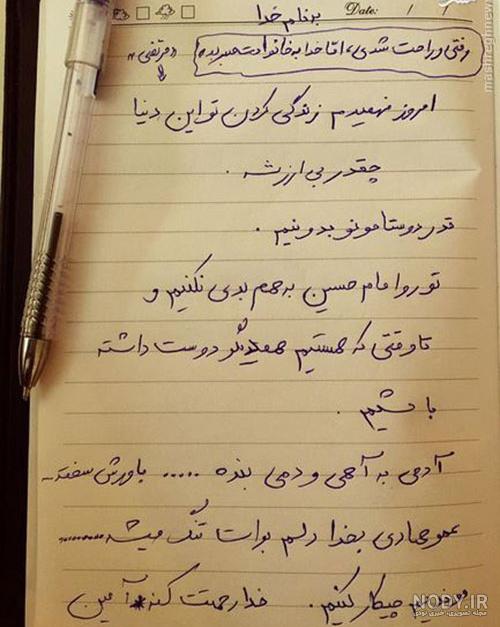 بنام خدا
Date: / /
رفتی و راحت شدی، اما خدا به خانوادت صبر بده
"مرتضی"
امروز فهمیدم زندگی کردن تو این دنیا
چقدر بی ارزشه .
قدر دوستامونو بدونیم .
تورو امام حسین به هم بدی نکنیم و
تا وقتی که هستیم همدیگر دوست داشته
باشیم .
آدمی به آهی و دمی بنده ..... باورش سخته ..
عمو هادی بخدا دلم براتا تنگ میشه ........
چیکار کنیم . خدا رحمت کنه آمین
mashreghnews
NODY.IR
مجله تصویری، خبری نودی